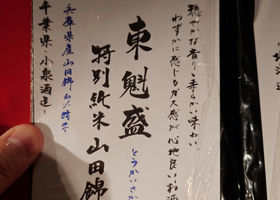 穏やかな香り柔らかい味わい
わずかに感じるガス感が心地良いお酒
東魁盛
とうかいざかり
特別純米山田錦
兵庫県産山田錦
千葉県・小泉酒造